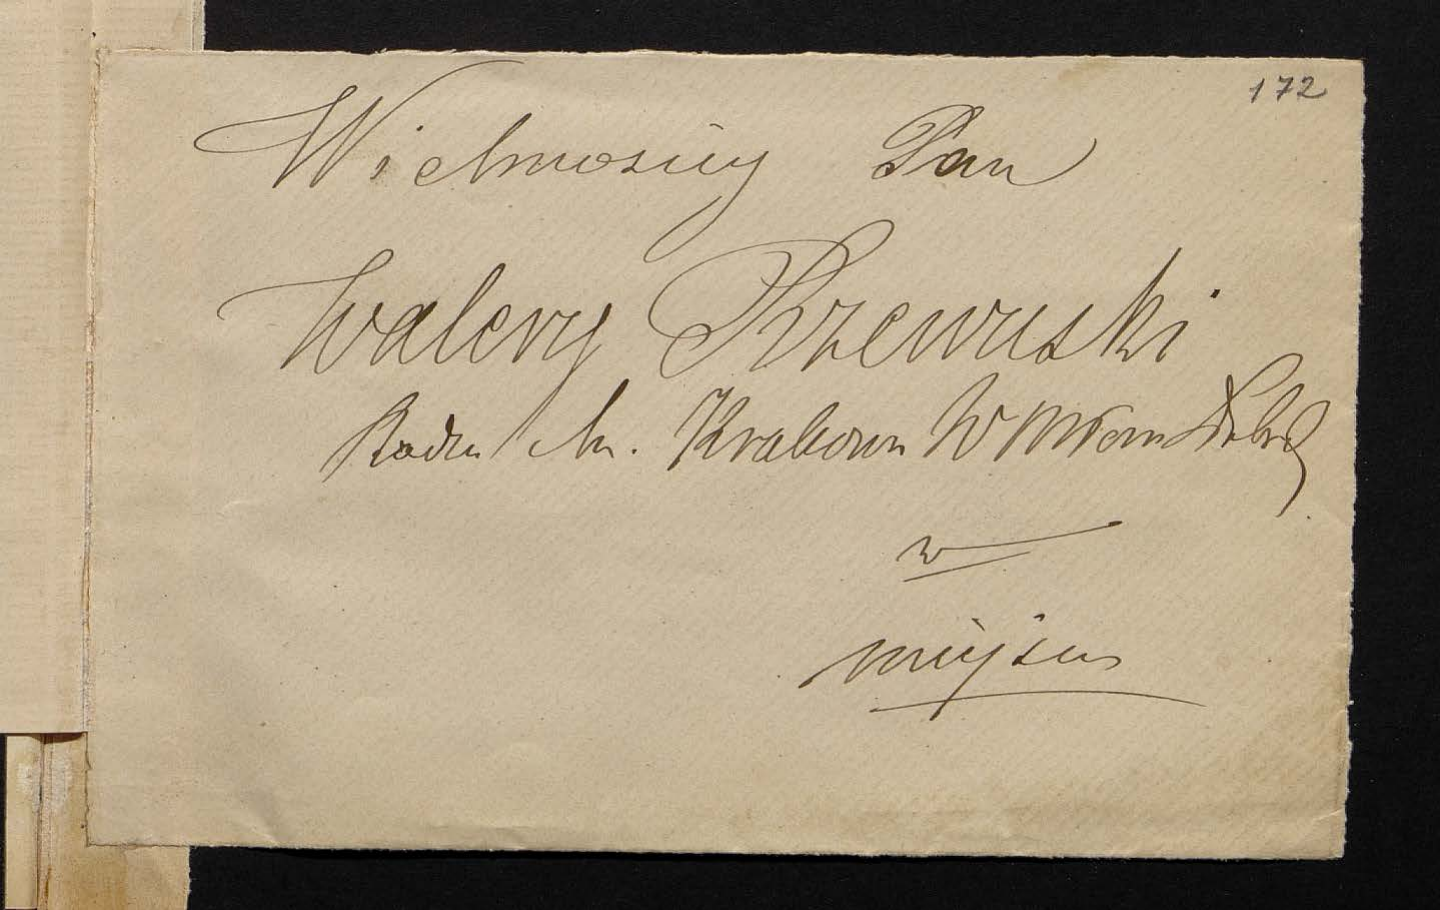 172
Wielmożny Pan
Walery Rzewuski
Radca M. Krakowa W
w
miejscu